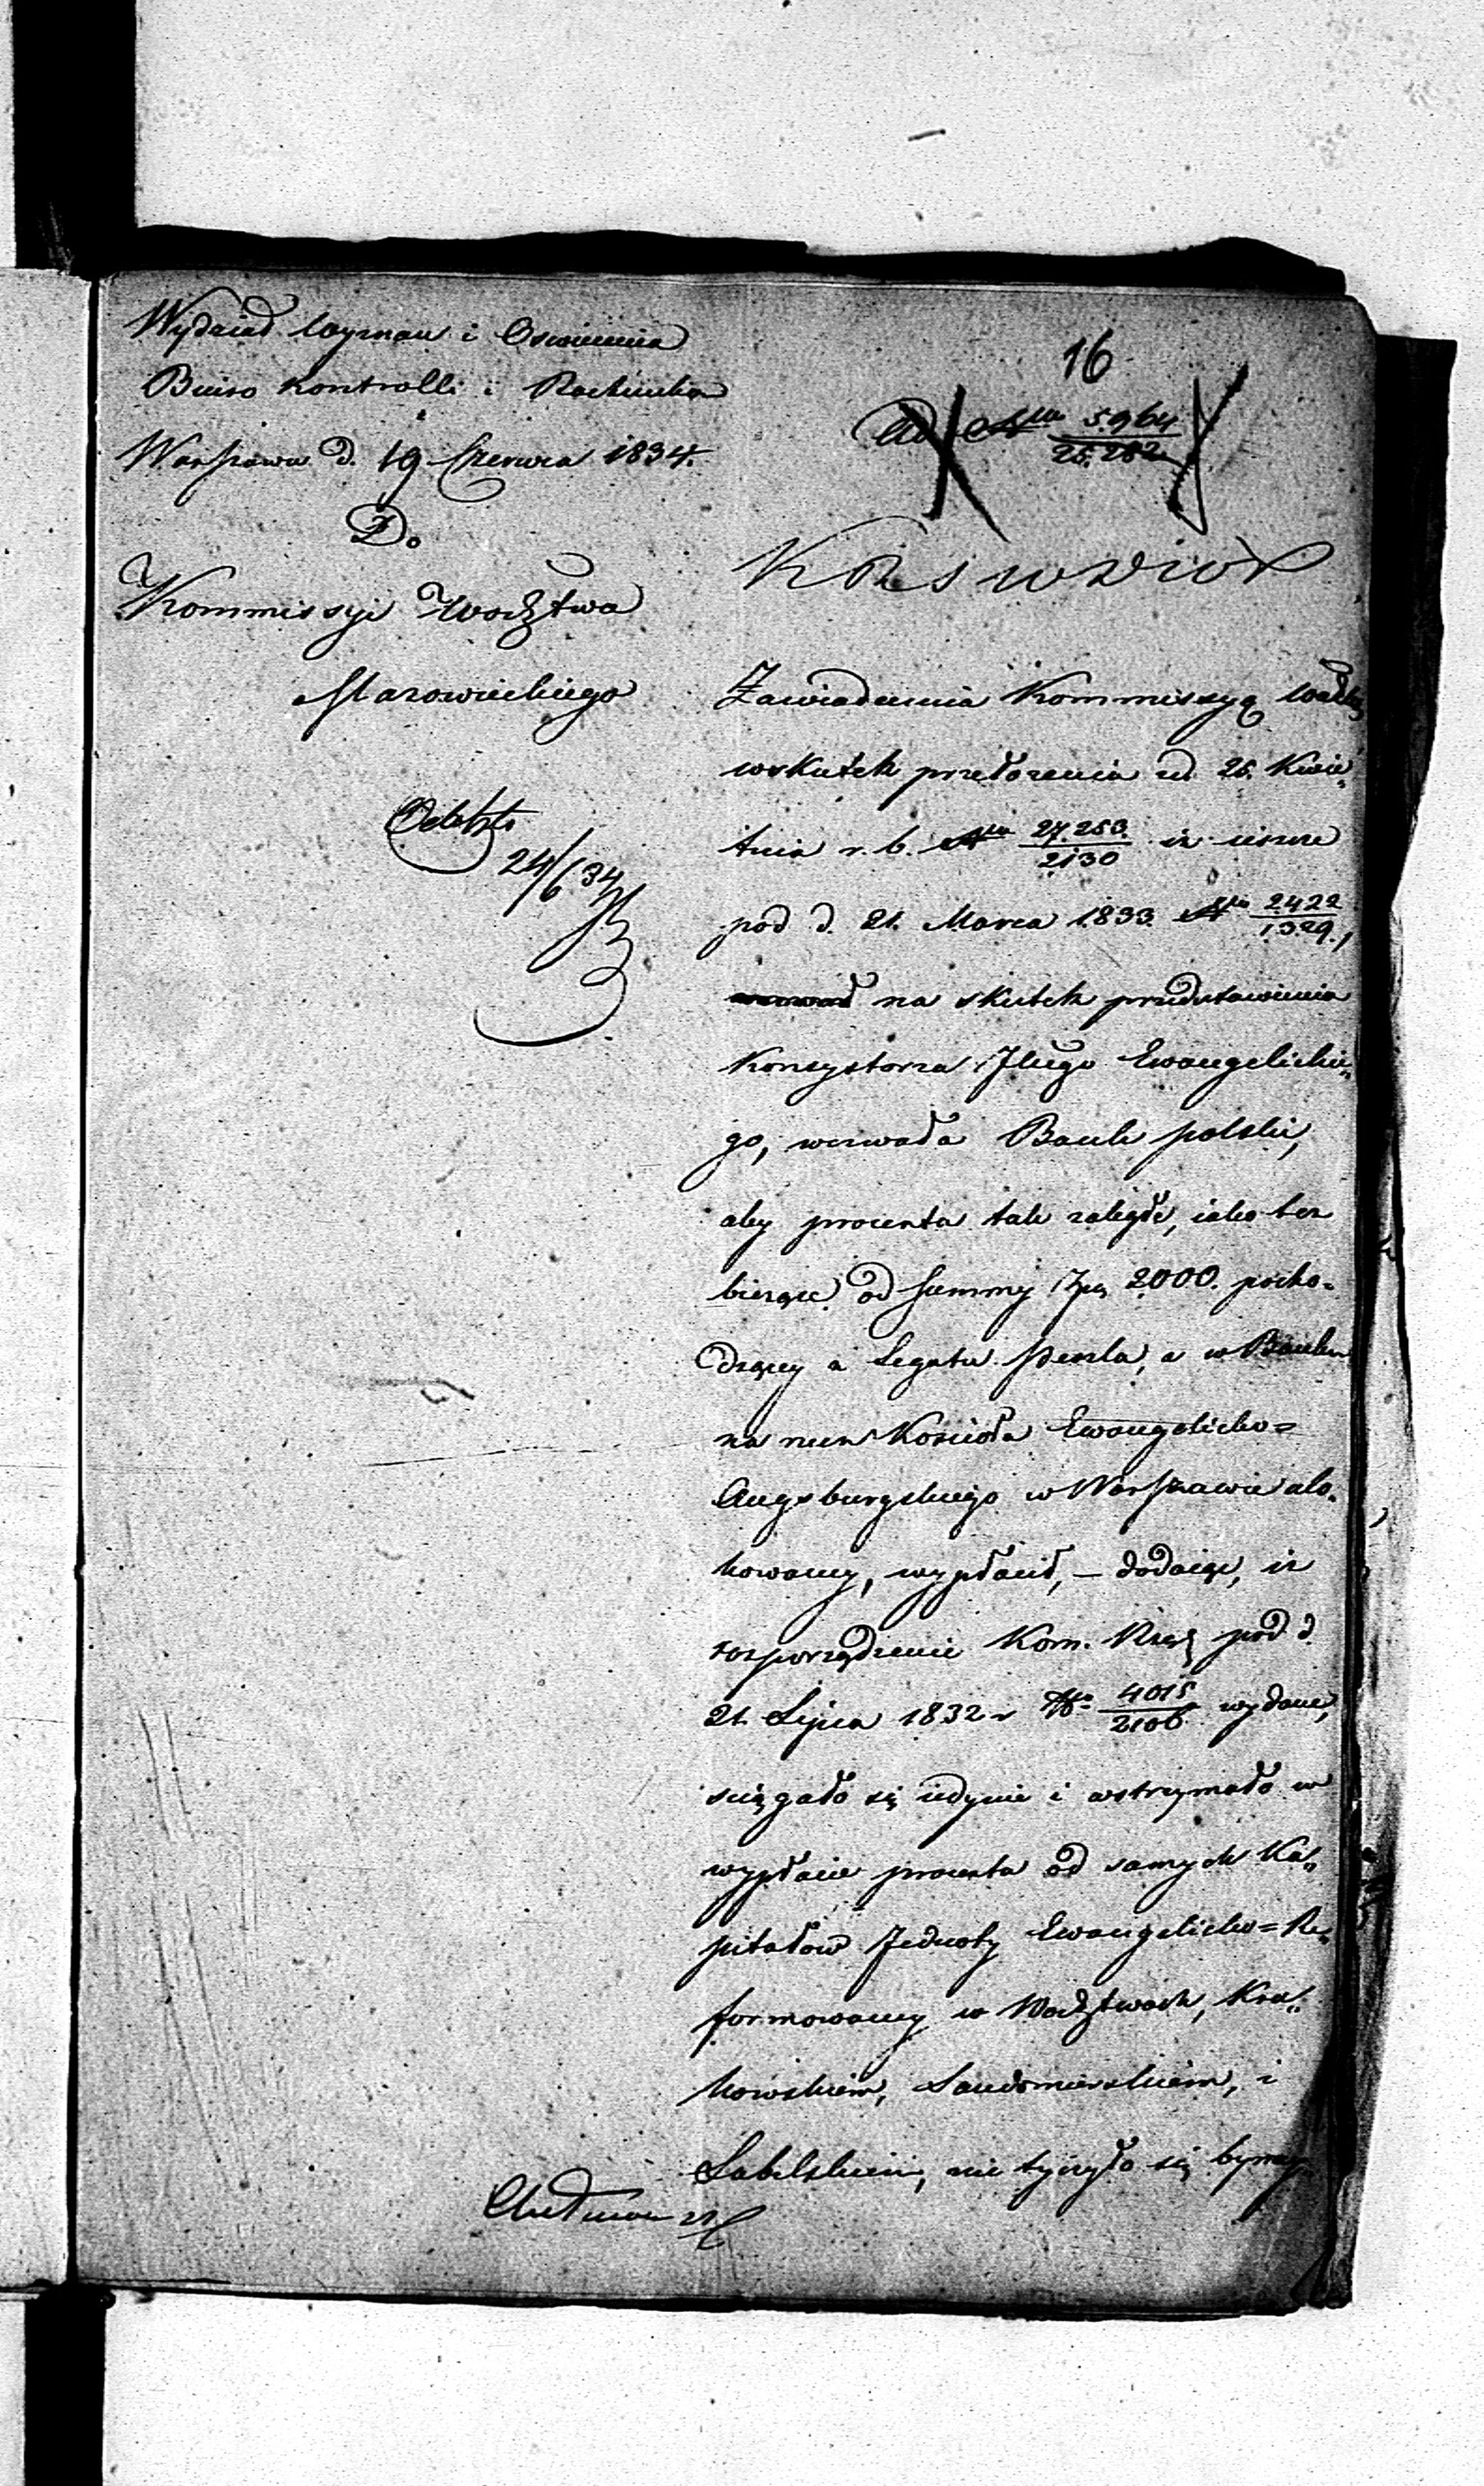 Wydział Wyznań i Oswiecenia
Biuro Kontrolli i Rachuuba
Warszawa d. 19 Czerwca 1834.
Do
Kommissyi Wodztwa
Mazowieckiego
Odeszło
24/6 34
16
Ad Nrum 5964/25.282
K R S W D i O P
Zawiadamia Kommissyą Wdztą
wskutek przełożenia z d. 25. Kwie„
tnia r. b. Nro 27.253./2130 iż ieszcze
pod d. 21. Marca 1833. Nro 2422/1329.,
na skutek przedstawienia
Konsystorza Jlnego Ewangelickie„
go, wezwała Bank polski,
aby procenta tak zaległe, iako też
bieżące od Summy Zp. 2000. pocho-
dzącey z Legatu, a w Banku
na rzecz Kościoła Ewangelicko=
Augsburgskiego w Warszawie ulo-
kowaney, wypłacił, – dodaiąc, iż
rozporządzenie Kom. Rząd. pod d.
21. Lipca 1832 r Nro 4015/2106 wydane,
sciągało się iedynie i wstrzymało w
wypłacie procenta od samych Ka„
pitałów Jednoty Ewangelicko=Re„
formowaney w Wodztwach, Kra„
kowskiem, Sandomierskiem, i
Lubelskiem, nie tyczyło się bynay„